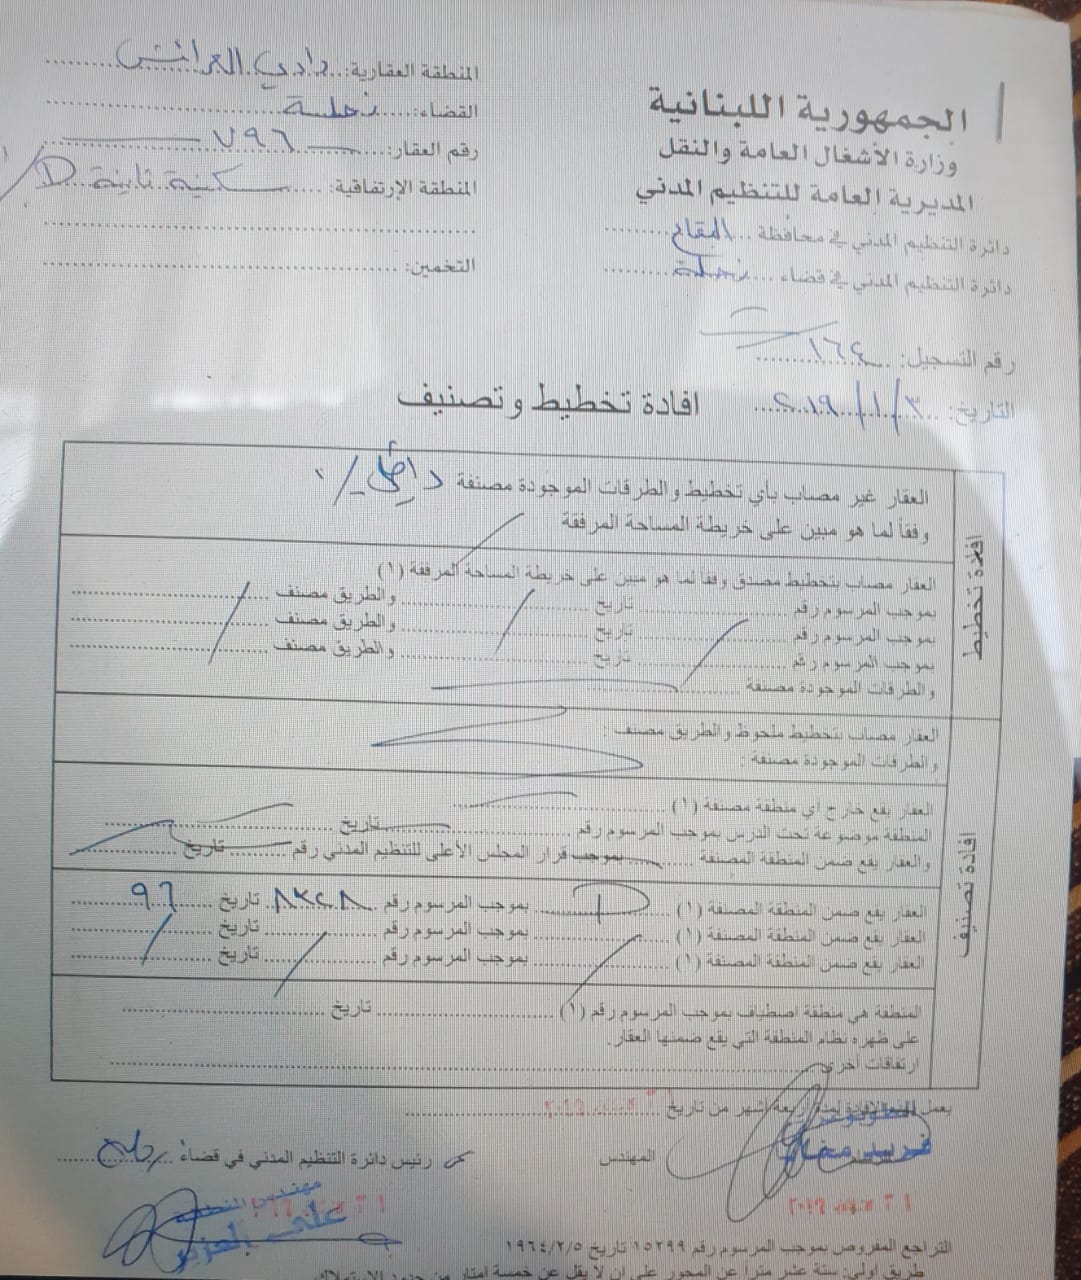 الجمهورية اللبنانية
وزارة الأشغال العامة والنقل
المديرية العامة للتنظيم المدني
دائرة التنظيم المدني في محافظة ... البقاع
دائرة التنظيم المدني في قضاء ... زحلة
رقم التسجيل: ١٦٤
التاريخ: ٢٠١٩/١/٣
المنطقة العقارية: وادي العرائش
القضاء: زحلة
رقم العقار: ٧٩٦
المنطقة الإرتفاقية: سكنية ثانية D
التخمين:
افادة تخطيط وتصنيف
افادة تخطيط
العقار غير مصاب بأي تخطيط والطرقات الموجودة مصنفة داخلي
وفقاً لما هو مبين على خريطة المساحة المرفقة
العقار مصاب بتخطيط مصدق وفقاً لما هو مبين على خريطة المساحة المرفقة (١)
بموجب المرسوم رقم ... تاريخ ... والطريق مصنف
بموجب المرسوم رقم ... تاريخ ... والطريق مصنف
بموجب المرسوم رقم ... تاريخ ... والطريق مصنف
والطرقات الموجودة مصنفة
العقار مصاب بتخطيط ملحوظ والطريق مصنف:
والطرقات الموجودة مصنفة:
افادة تصنيف
العقار يقع خارج أي منطقة مصنفة (١)
المنطقة موضوعة تحت الدرس بموجب المرسوم رقم ... تاريخ
والعقار يقع ضمن المنطقة المصنفة ... بموجب قرار المجلس الأعلى للتنظيم المدني رقم ... تاريخ
العقار يقع ضمن المنطقة المصنفة (١) D بموجب المرسوم رقم ... تاريخ ٩٦
العقار يقع ضمن المنطقة المصنفة (١) ... بموجب المرسوم رقم ... تاريخ
العقار يقع ضمن المنطقة المصنفة (١) ... بموجب المرسوم رقم ... تاريخ
المنطقة هي منطقة اصطياف بموجب المرسوم رقم (١) ... تاريخ
على ظهره نظام المنطقة التي يقع ضمنها العقار.
ارتفاقات أخرى
يعمل بهذه الافادة لمدة اربعة أشهر من تاريخ
المهندس
رئيس دائرة التنظيم المدني في قضاء
مهندس المنطقة
التراجع المفروض بموجب المرسوم رقم ١٥٢٩٩ تاريخ ١٩٦٤/٢/٥
طريق اولى: ستة عشر متراً عن المحور على ان لا يقل عن خمسة امتار من حدود الاستملاك